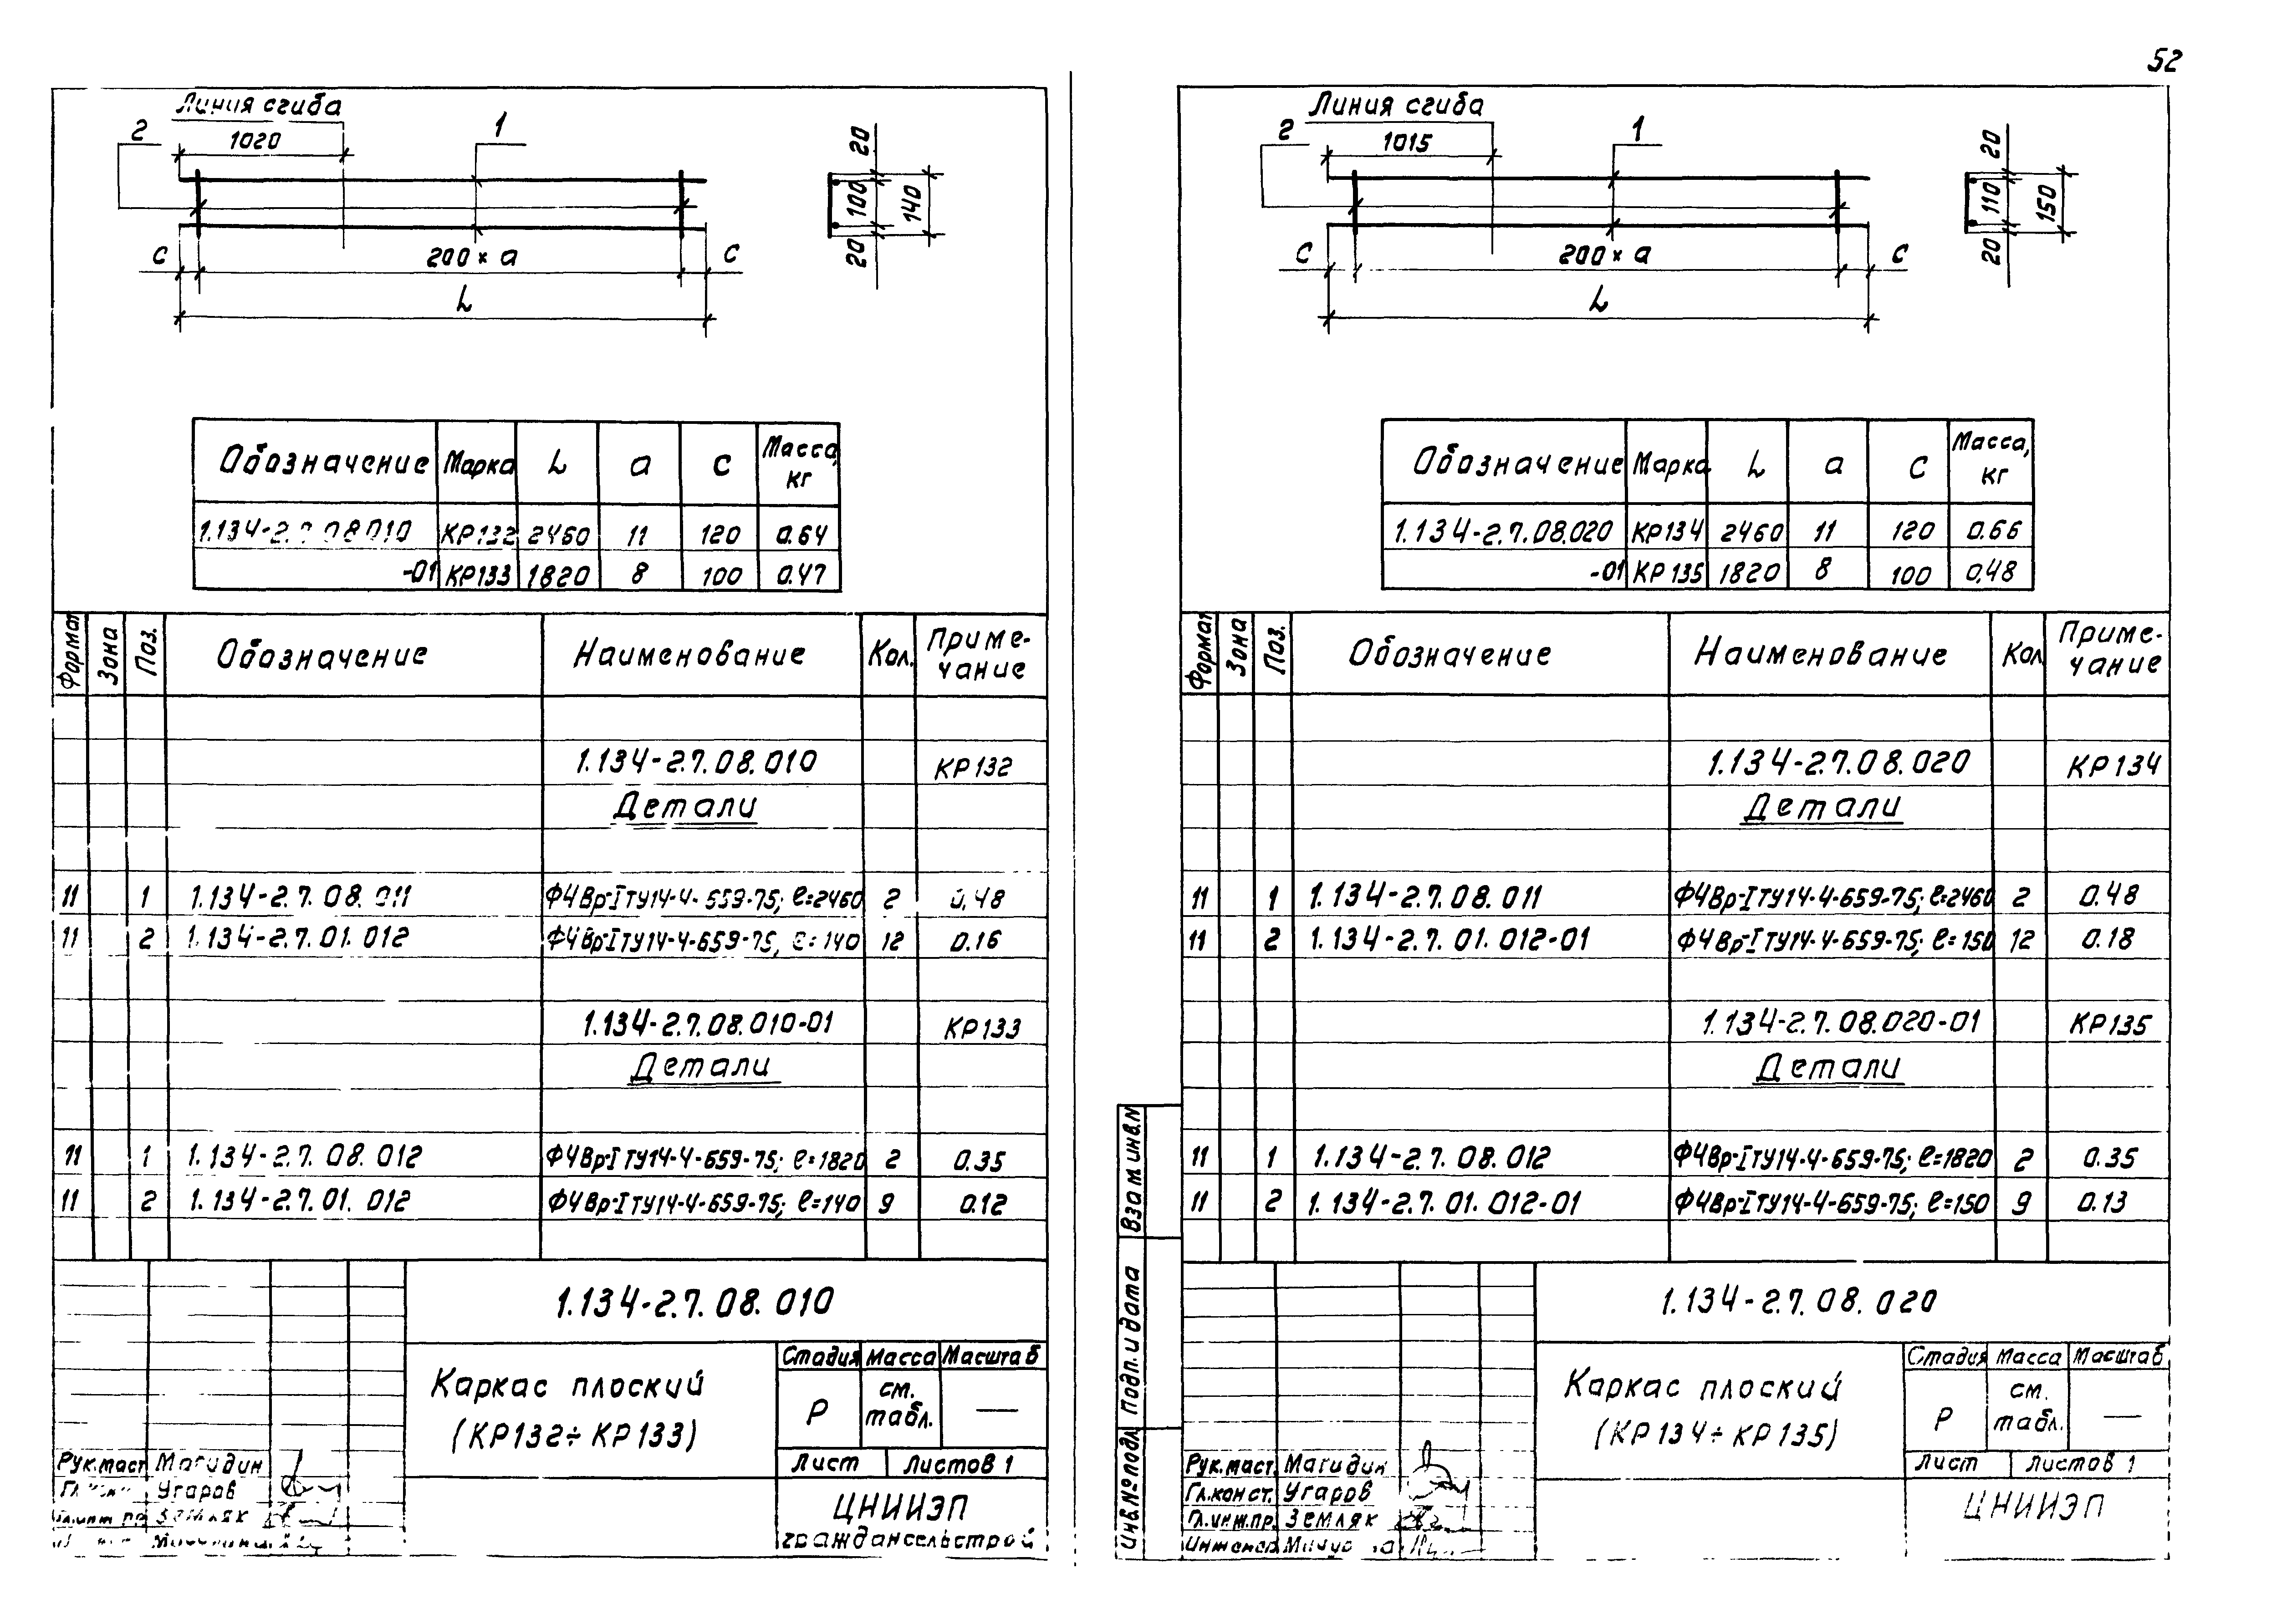 52
Линия сгиба
1020
2
1
20
100
140
20
С
200 × а
С
L
Обозначение Марка L а С Масса, кг
1.134-2.7.08.010 КР132 2460 11 120 0.64
-01 КР133 1820 8 100 0.47
Формат Зона Поз. Обозначение Наименование Кол. Приме-
чание
1.134-2.7.08.010 КР132
Детали
11 1 1.134-2.7.08.011 Ф4Вр-I ТУ14-4-659-75; ℓ=2460 2 0.48
11 2 1.134-2.7.01.012 Ф4Вр-I ТУ14-4-659-75, ℓ=140 12 0.16
1.134-2.7.08.010-01 КР133
Детали
11 1 1.134-2.7.08.012 Ф4Вр-I ТУ14-4-659-75; ℓ=1820 2 0.35
11 2 1.134-2.7.01.012 Ф4Вр-I ТУ14-4-659-75; ℓ=140 9 0.12
1.134-2.7.08.010
Каркас плоский
(КР132÷КР133)
Стадия Масса Масштаб
Р см. табл. —
Лист Листов 1
ЦНИИЭП
граждансельстрой
Рук.маст. Магидин
Угаров
Земляк
Линия сгиба
1015
2
1
20
110
150
20
С
200 × а
С
L
Обозначение Марка L а С Масса, кг
1.134-2.7.08.020 КР134 2460 11 120 0.66
-01 КР135 1820 8 100 0,48
Формат Зона Поз. Обозначение Наименование Кол. Приме-
чание
1.134-2.7.08.020 КР134
Детали
11 1 1.134-2.7.08.011 Ф4Вр-I ТУ14-4-659-75; ℓ=2460 2 0.48
11 2 1.134-2.7.01.012-01 Ф4Вр-I ТУ14-4-659-75; ℓ=150 12 0.18
1.134-2.7.08.020-01 КР135
Детали
11 1 1.134-2.7.08.012 Ф4Вр-I ТУ14-4-659-75; ℓ=1820 2 0.35
11 2 1.134-2.7.01.012-01 Ф4Вр-I ТУ14-4-659-75; ℓ=150 9 0.13
Взам инв.N
Подп. и дата
Инв.№ подл
1.134-2.7.08.020
Каркас плоский
(КР134÷КР135)
Стадия Масса Масштаб
Р см. табл. —
Лист Листов 1
ЦНИИЭП
Рук.маст. Магидин
Гл.конст. Угаров
Гл.инж.пр. Земляк